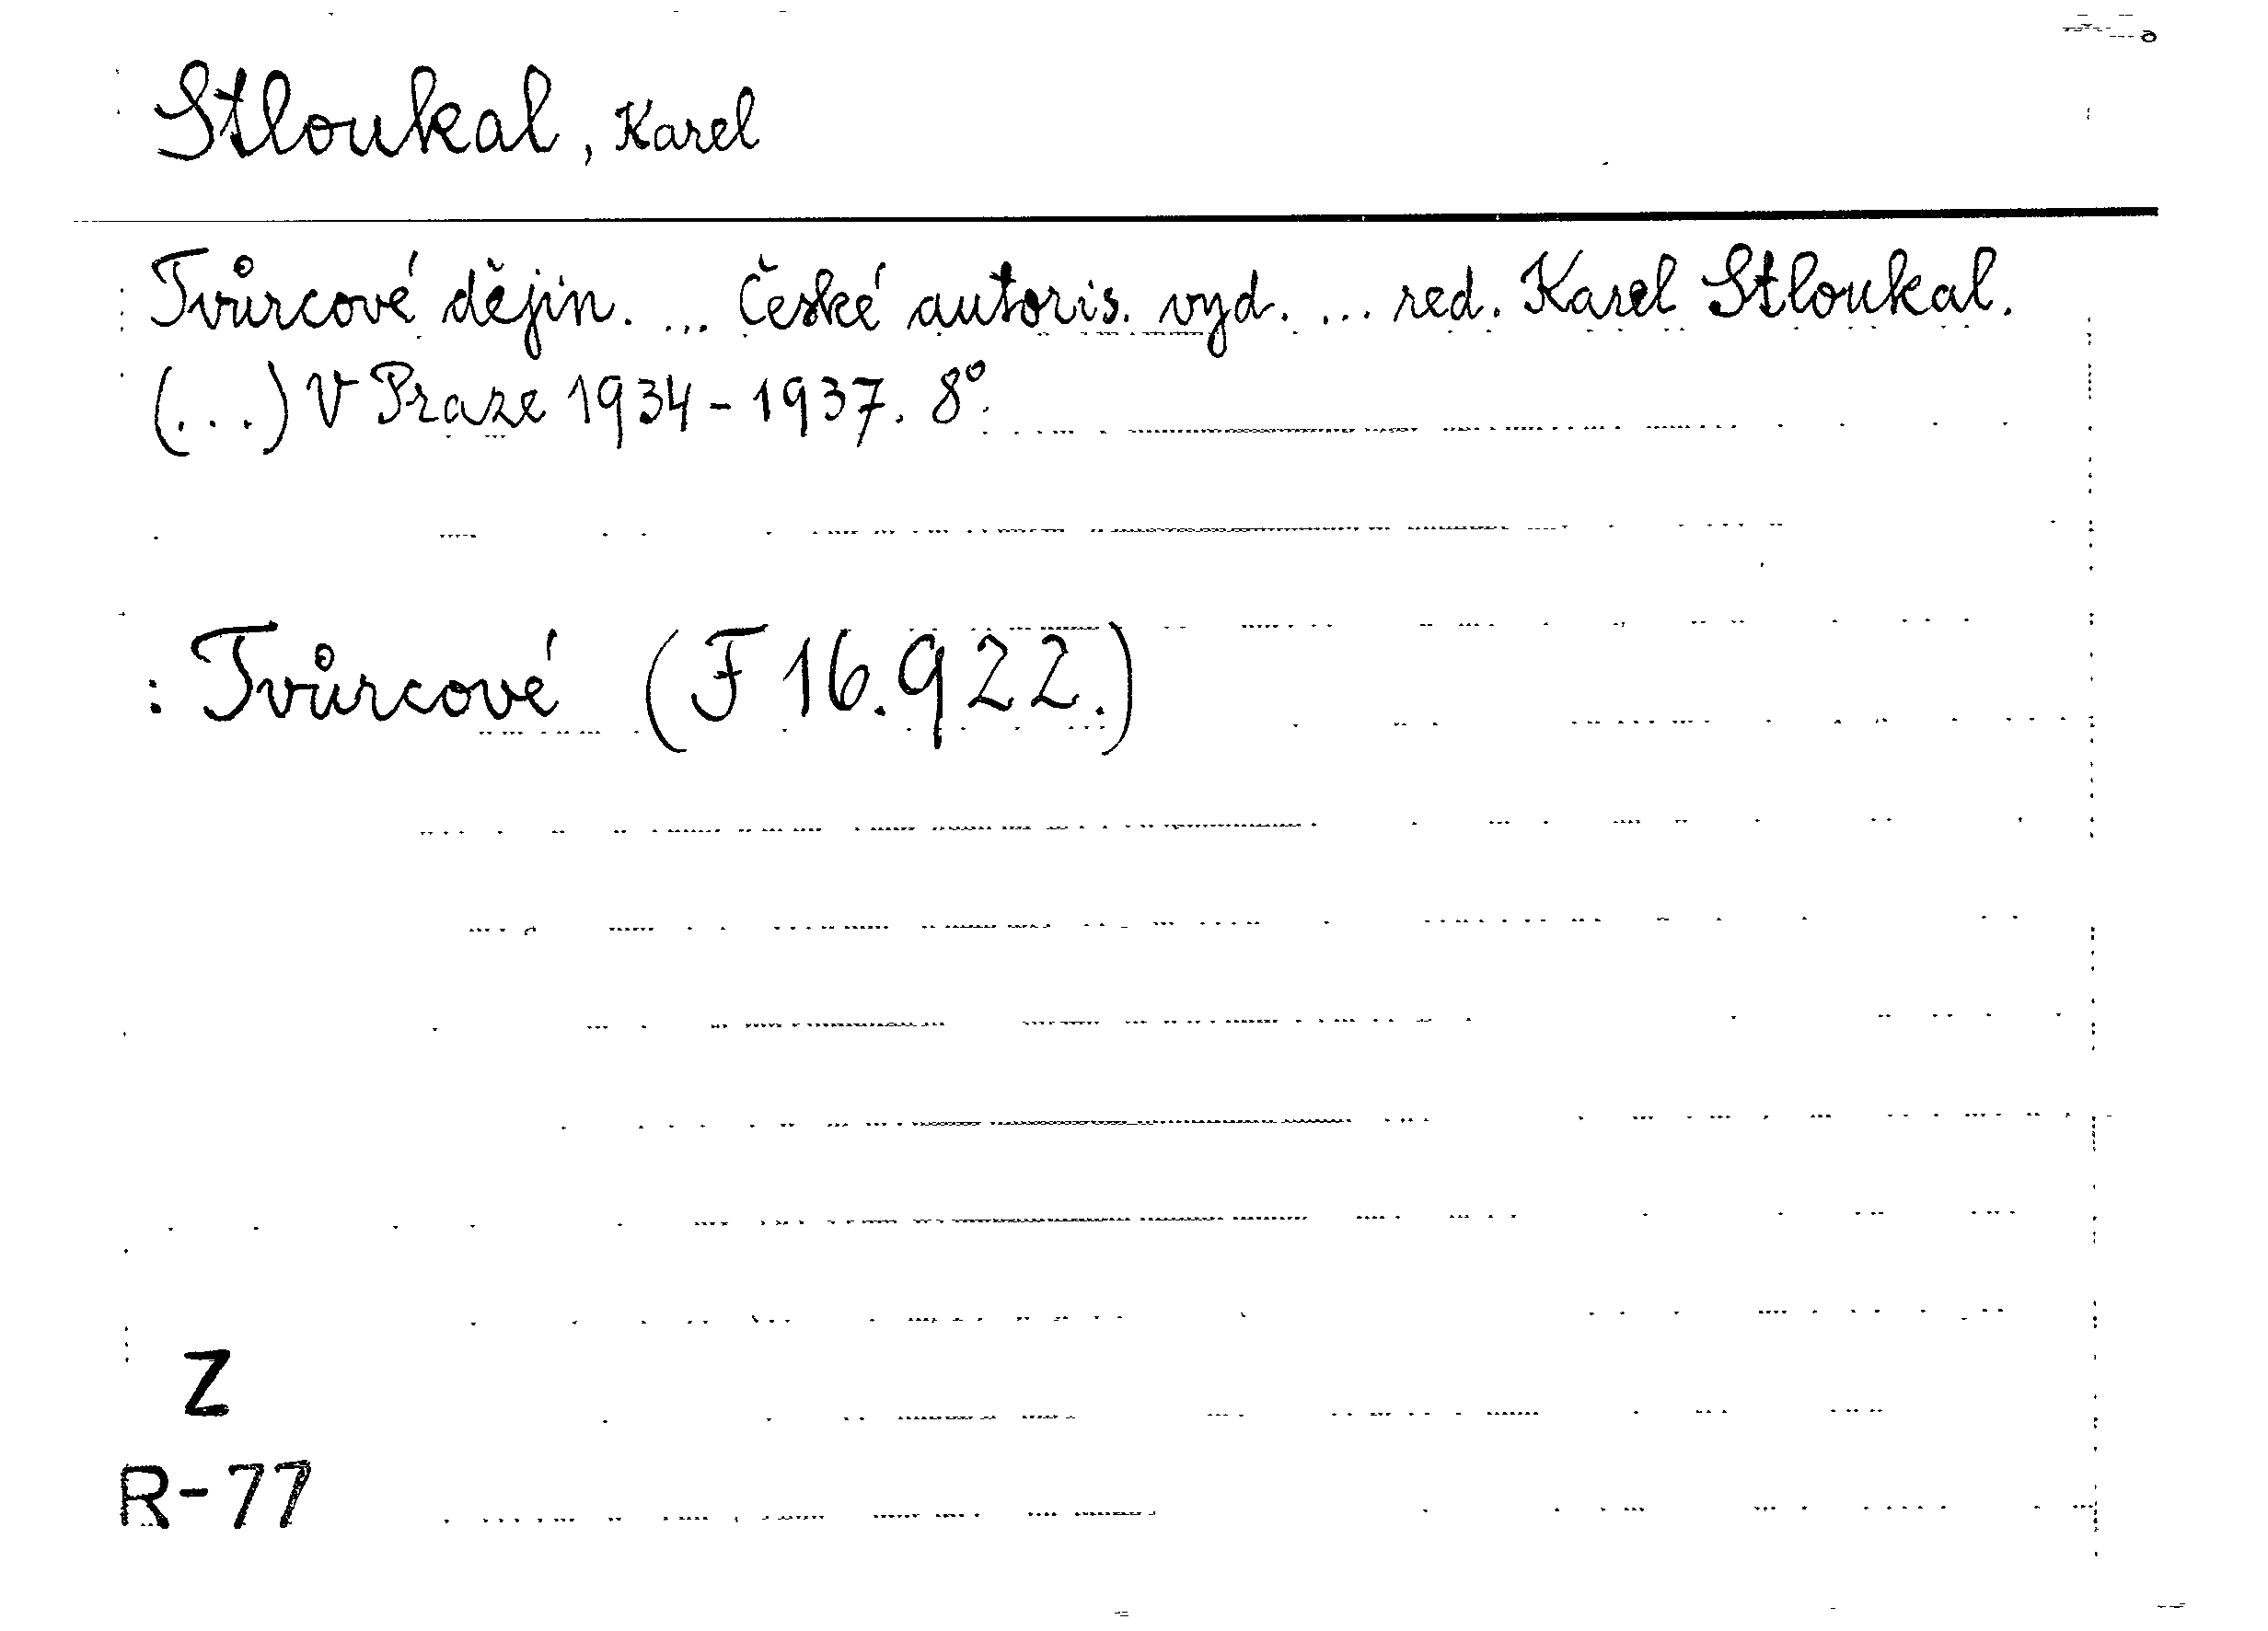 Stloukal, Karel
Tvůrcové dějin. ... České autoris. vyd. ... red. Karel Stloukal.
(...) V Praze 1934-1937. 8°.
: Tvůrcové (F 16.922.)
Z
R-77